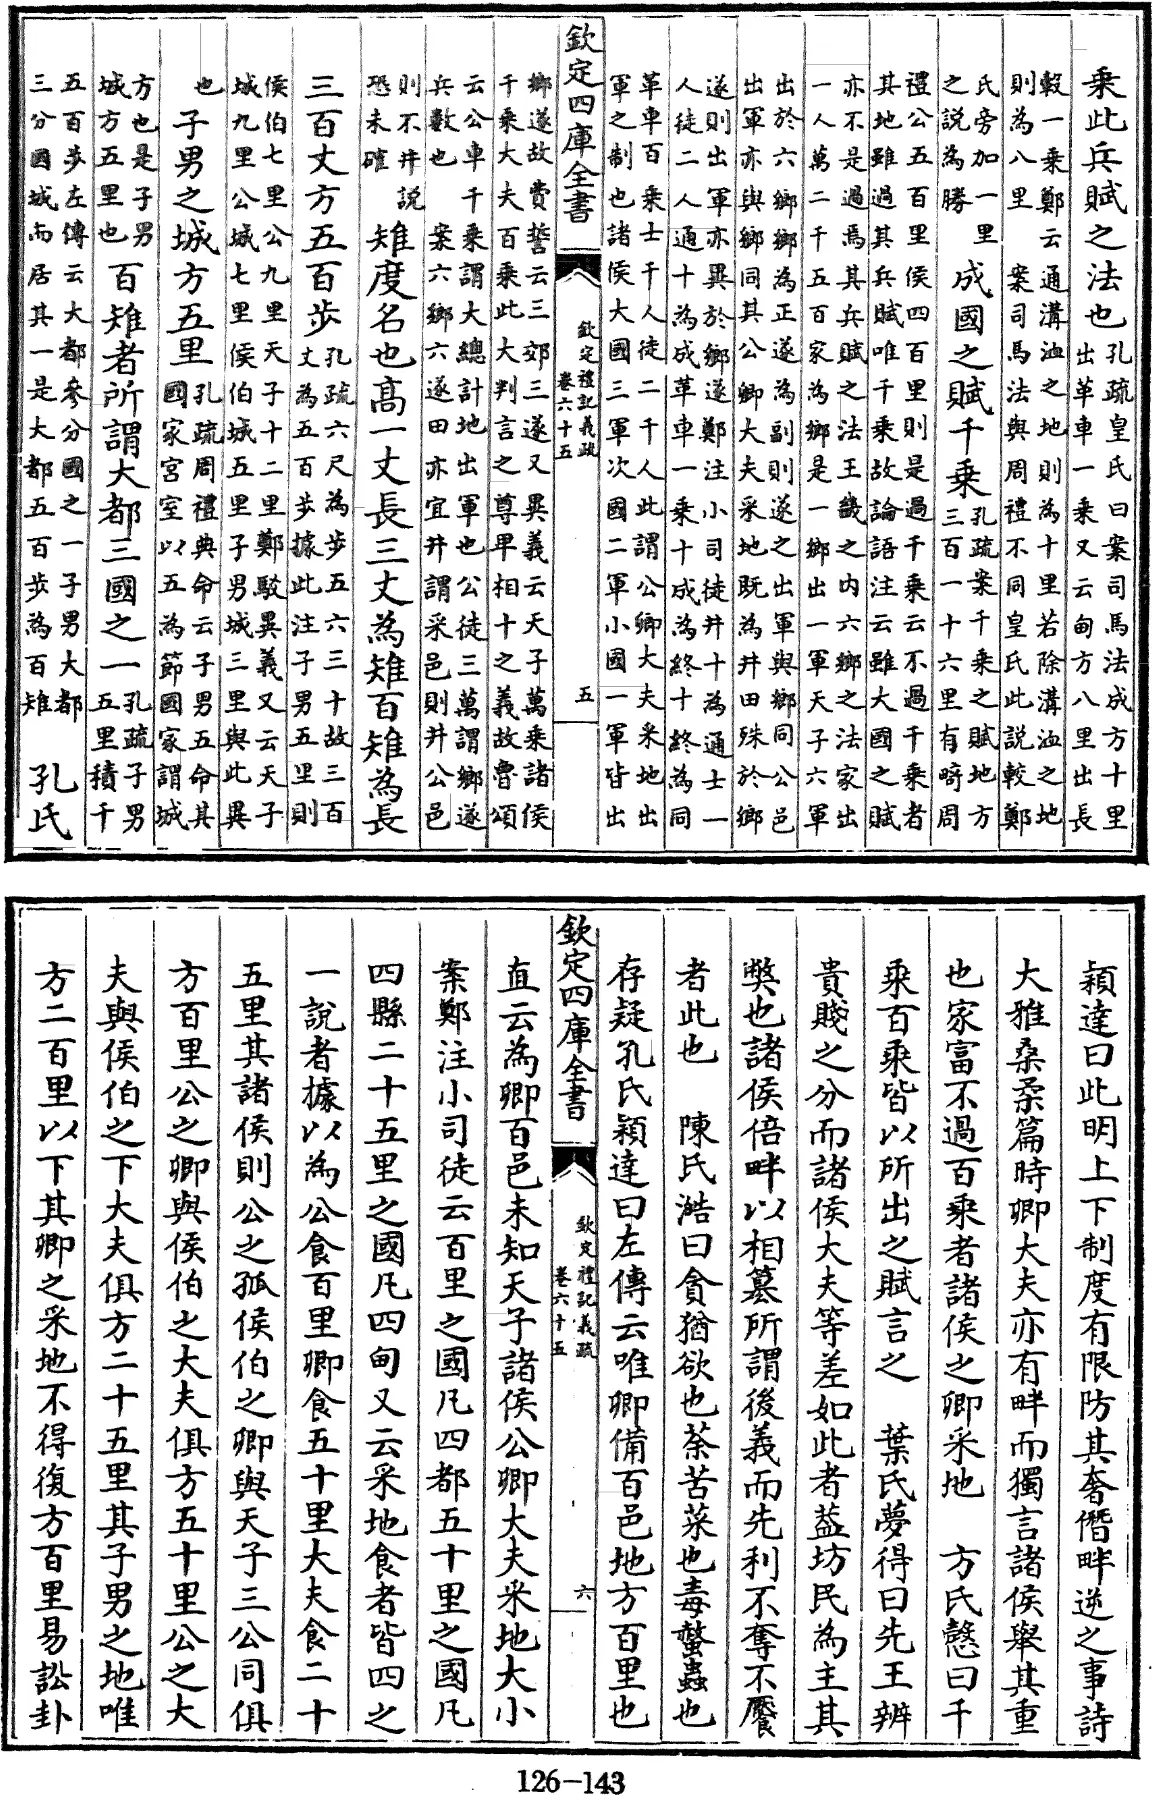 乘此兵賦之法也孔疏皇氏曰案司馬法成方十里出革車一乘又云甸方八里出長
轂一乘鄭云通溝洫之地則為十里若除溝洫之地則為八里 案司馬法與周禮不同皇氏此說較鄭
氏旁加一里之說為勝 成國之賦千乘孔疏案千乘之賦地方三百一十六里有畸周
禮公五百里侯四百里則是過千乘云不過千乘者其地雖過其兵賦唯千乘故論語注云雖大國之賦
亦不是過焉其兵賦之法王畿之內六鄉之法家出一人萬二千五百家為鄉是一鄉出一軍天子六軍
出於六鄉鄉為正遂為副則遂之出軍與鄉同公邑出軍亦與鄉同其公卿大夫采地既為井田殊於鄉
遂則出軍亦異於鄉遂鄭注小司徒井十為通士一人徒二人通十為成革車一乘十成為終十終為同
革車百乘士千人徒二千人此謂公卿大夫采地出軍之制也諸侯大國三軍次國二軍小國一軍皆出
欽定四庫全書 欽定禮記義疏 卷六十五 五
鄉遂故費誓云三郊三遂又異義云天子萬乘諸侯千乘大夫百乘此大判言之尊卑相十之義故魯頌
云公車千乘謂大總計地出軍也公徒三萬謂鄉遂兵數也 案六鄉六遂田亦宜井謂采邑則井公邑
則不井說恐未確 雉度名也高一丈長三丈為雉百雉為長
三百丈方五百步孔疏六尺為步五六三十故三百丈為五百步據此注子男五里則
侯伯七里公九里天子十二里鄭駁異義又云天子城九里公城七里侯伯城五里子男城三里與此異
也 子男之城方五里孔疏周禮典命云子男五命其國家宮室以五為節國家謂城
方也是子男城方五里也 百雉者所謂大都三國之一孔疏子男五里積千
五百步左傳云大都參分國之一子男大都三分國城而居其一是大都五百步為百雉 孔氏
穎達曰此明上下制度有限防其奢僭畔逆之事詩
大雅桑柔篇時卿大夫亦有畔而獨言諸侯舉其重
也家富不過百乘者諸侯之卿采地 方氏慤曰千
乘百乘皆以所出之賦言之 葉氏夢得曰先王辨
貴賤之分而諸侯大夫等差如此者蓋坊民為主其
獘也諸侯倍畔以相簒所謂後義而先利不奪不饜
者此也 陳氏澔曰貪猶欲也荼苦菜也毒螫蟲也
存疑孔氏穎達曰左傳云唯卿備百邑地方百里也
欽定四庫全書 欽定禮記義疏 卷六十五 六
直云為卿百邑未知天子諸侯公卿大夫采地大小
案鄭注小司徒云百里之國凡四都五十里之國凡
四縣二十五里之國凡四甸又云采地食者皆四之
一說者據以為公食百里卿食五十里大夫食二十
五里其諸侯則公之孤侯伯之卿與天子三公同俱
方百里公之卿與侯伯之大夫俱方五十里公之大
夫與侯伯之下大夫俱方二十五里其子男之地唯
方二百里以下其卿之采地不得復方百里易訟卦
126-143